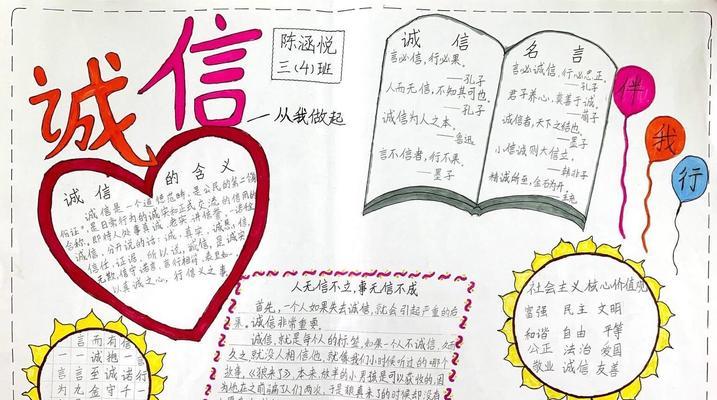 诚信
陈涵悦
三(4)班
—从我做起
诚信
名言
言必信，行必果。
——孔子
人而无信，不知其可也。
——孔子
诚信为人之本。
——鲁迅
言不信者，行不果。
——墨子
言必诚信，行必忠正。
——孔子
君子养心，莫善于诚。
——荀子
诚信者，天下之结也。
——墨子
小信诚则大信立。
——韩非子
精诚所至，金石为开。
伴
我
行
诚信的含义
诚信是一个道德范畴，是公民的第二个"身
份证"，是日常行为的诚实和正式交流的信用的
合称。即待人处事真诚、老实、讲信誉，一诺千金
诚信，分开说的话：诚，真实，诚恳；信，
信任，证据。所以说，诚信，是诚实
无欺，信守诺言，言行相符，表里如一
以真诚之心，行信义之事
人无信不立，事无信不成
首先，一个人如果失去诚信，就会引起严重的后
果。诚信非常重要。
诚信，就是每个人的标签，如果一个人不诚信，久而
久之，就没人相信他，就像我们小时候听过的哪个
故事，《狼来了》本来放羊的小男孩是可以获救的，因
为他在之前骗了人们两次，于是狼真来了的时候却没有
社会主义核心价值观
富强 民主 文明
和谐 自由 平等
公正 法治 爱国
敬业 诚信 友善
言而有信
一诚抱一
言至诚诺行
为九金守千一